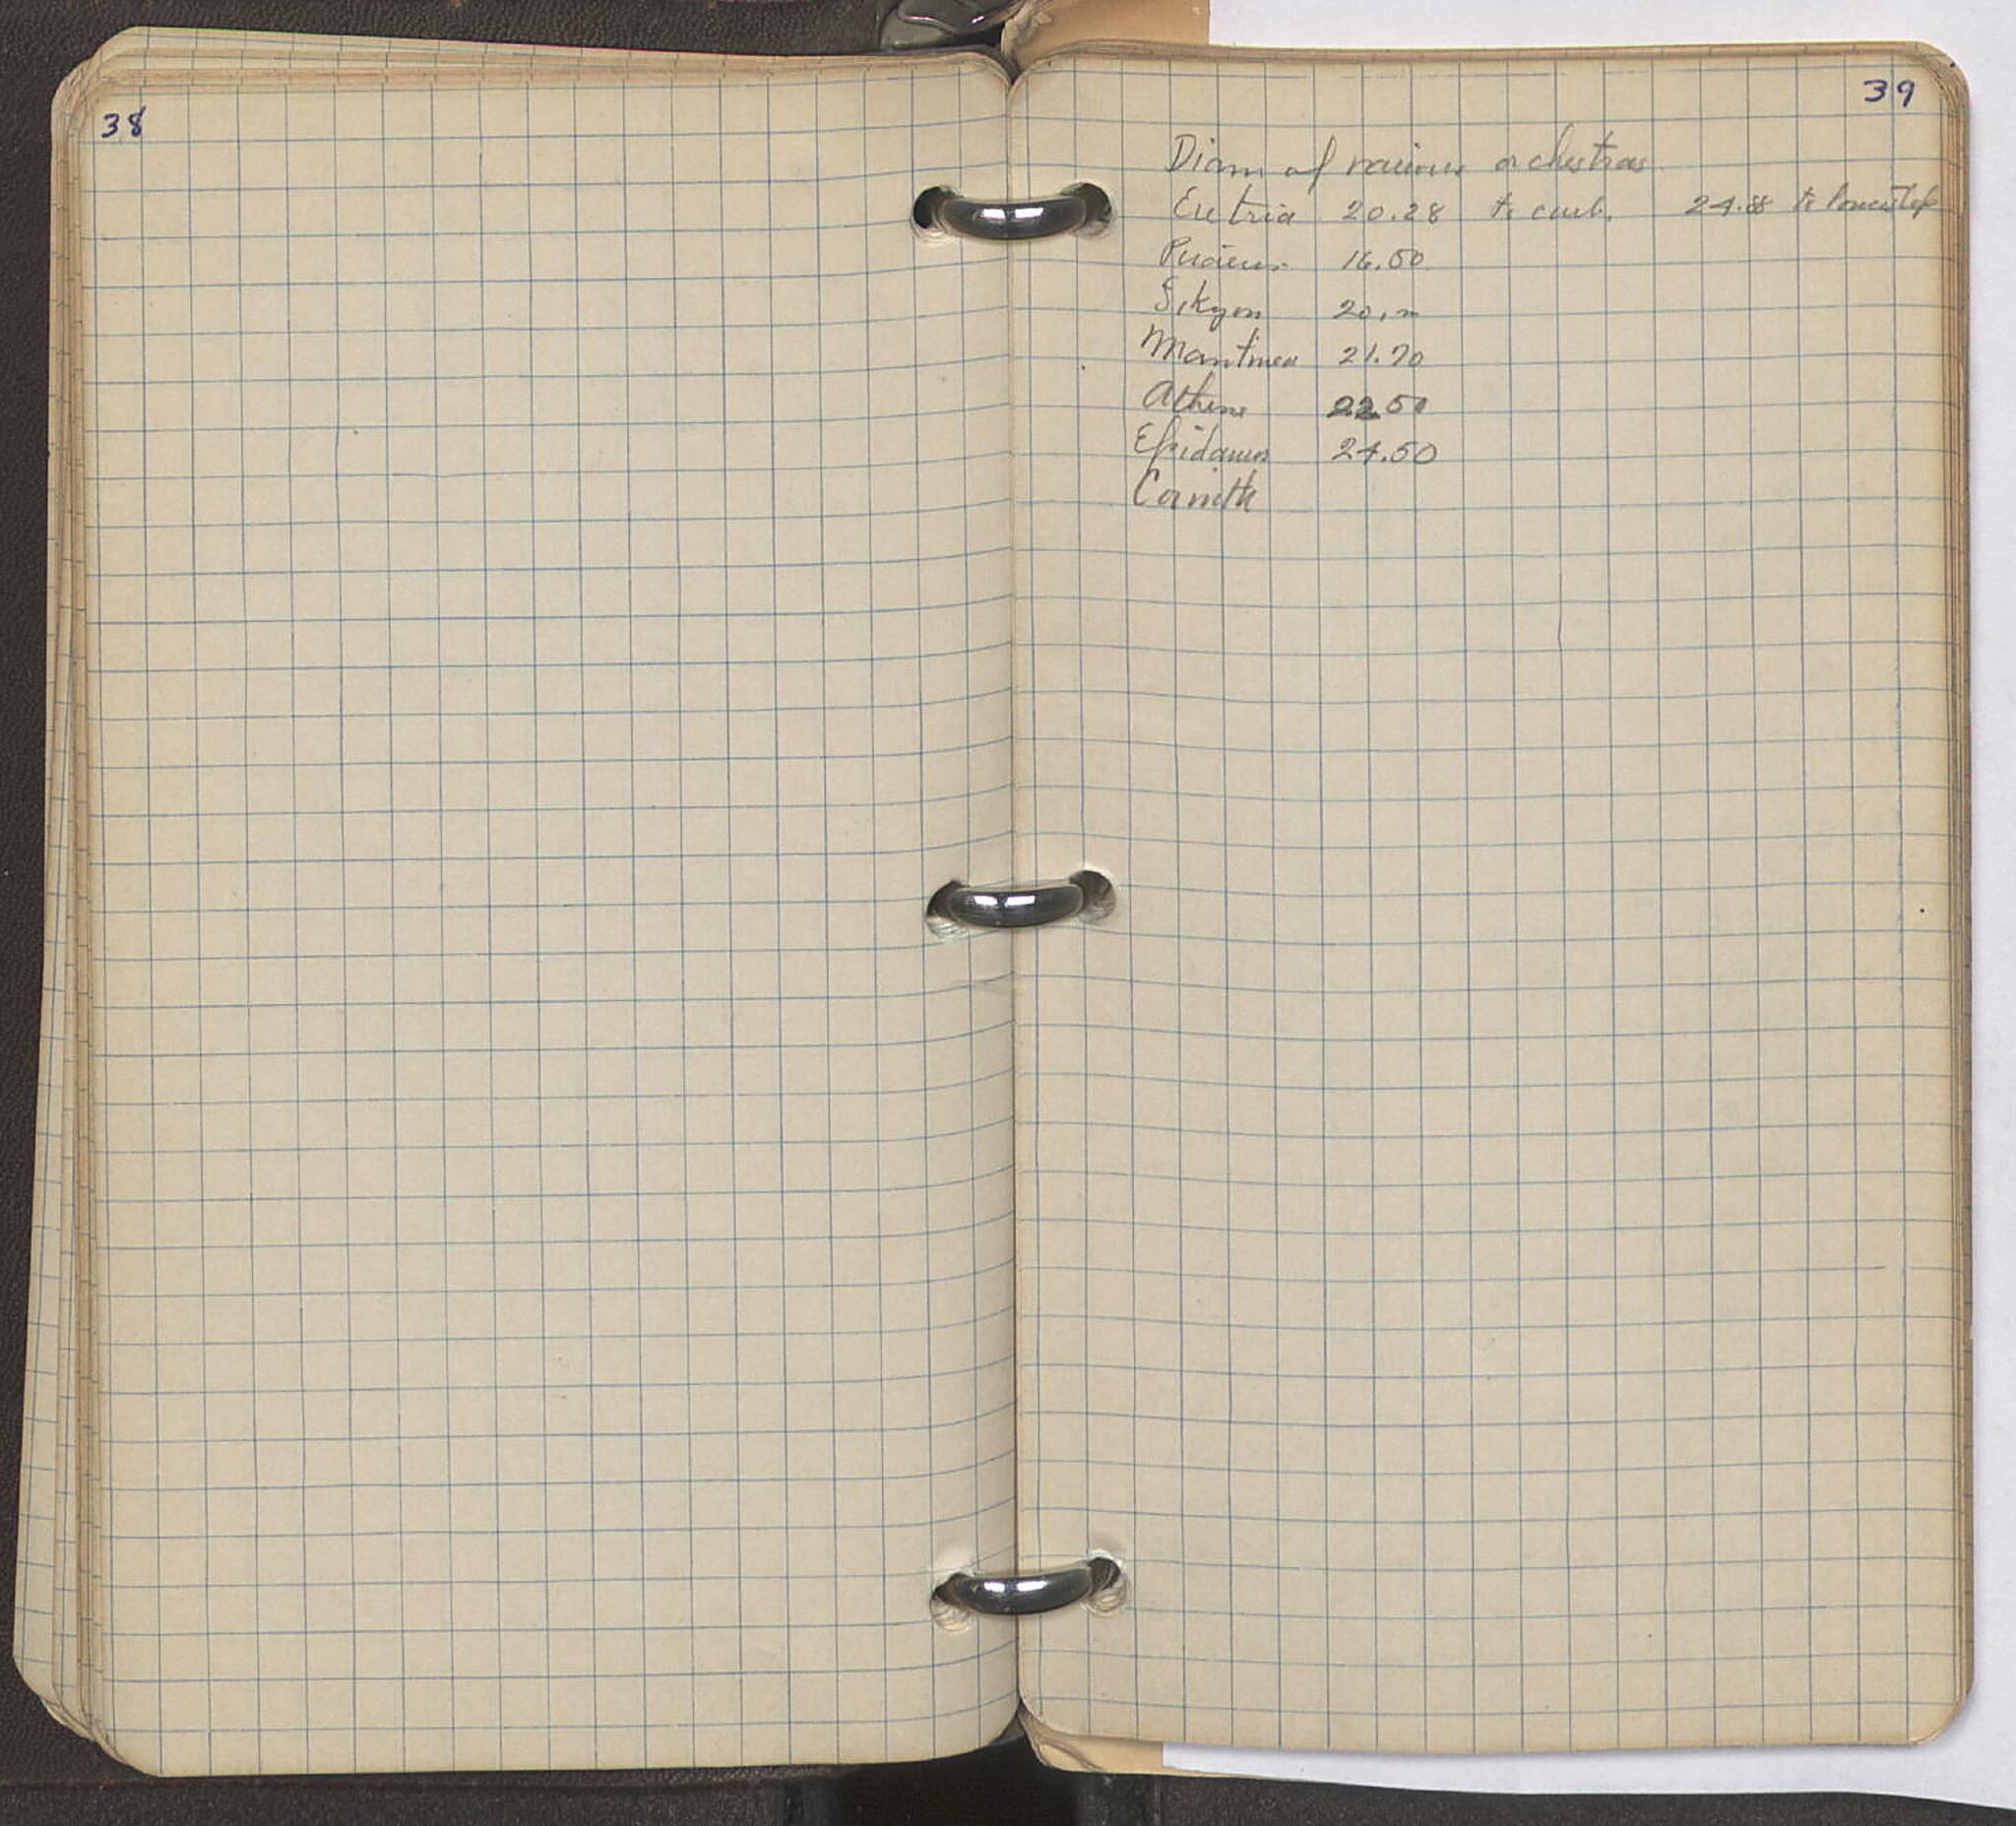 38
39
Diam of various orchestras
Eretria 20.28 to curb. 24.88 to lowest step
Piraeus 16.50
Sikyon 20.m
Mantinea 21.70
Athens 22 50
Epidauros 24.50
Corinth